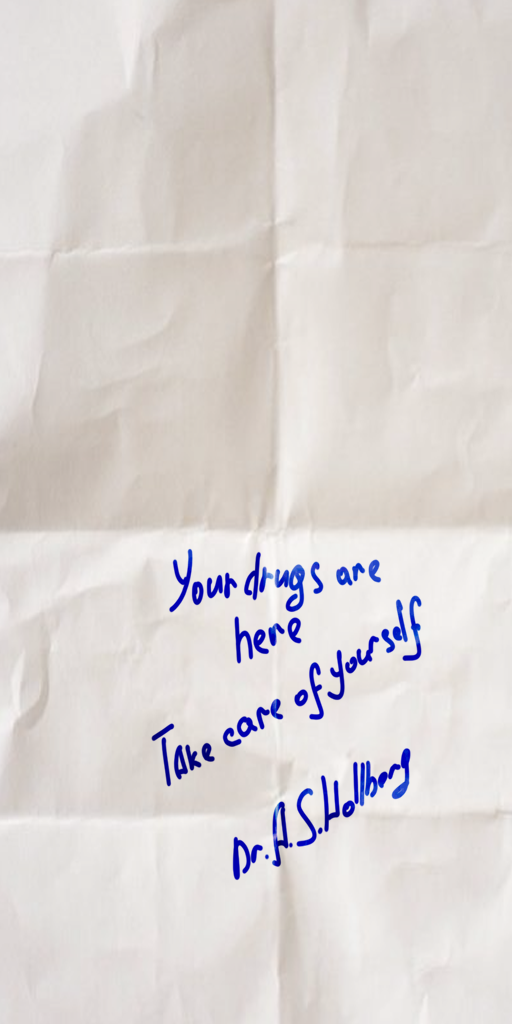 Your drugs are
here
Take care of yourself
Dr. A. S. Hollberg